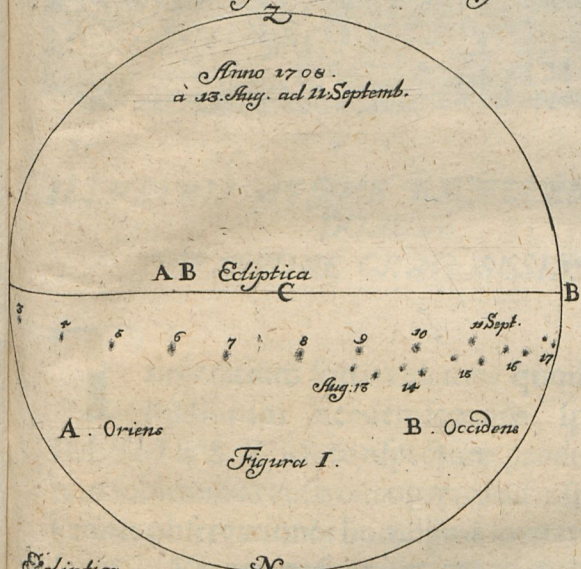 Z
Anno 1708.
à 13. Aug. ad 11. Septemb.
A B Ecliptica
C B
3 4 5 6 7 8 9 10 11 Sept.
Aug. 13 14 15 16 17
A. Oriens B. Occidens
Figura I.
Ecliptica N